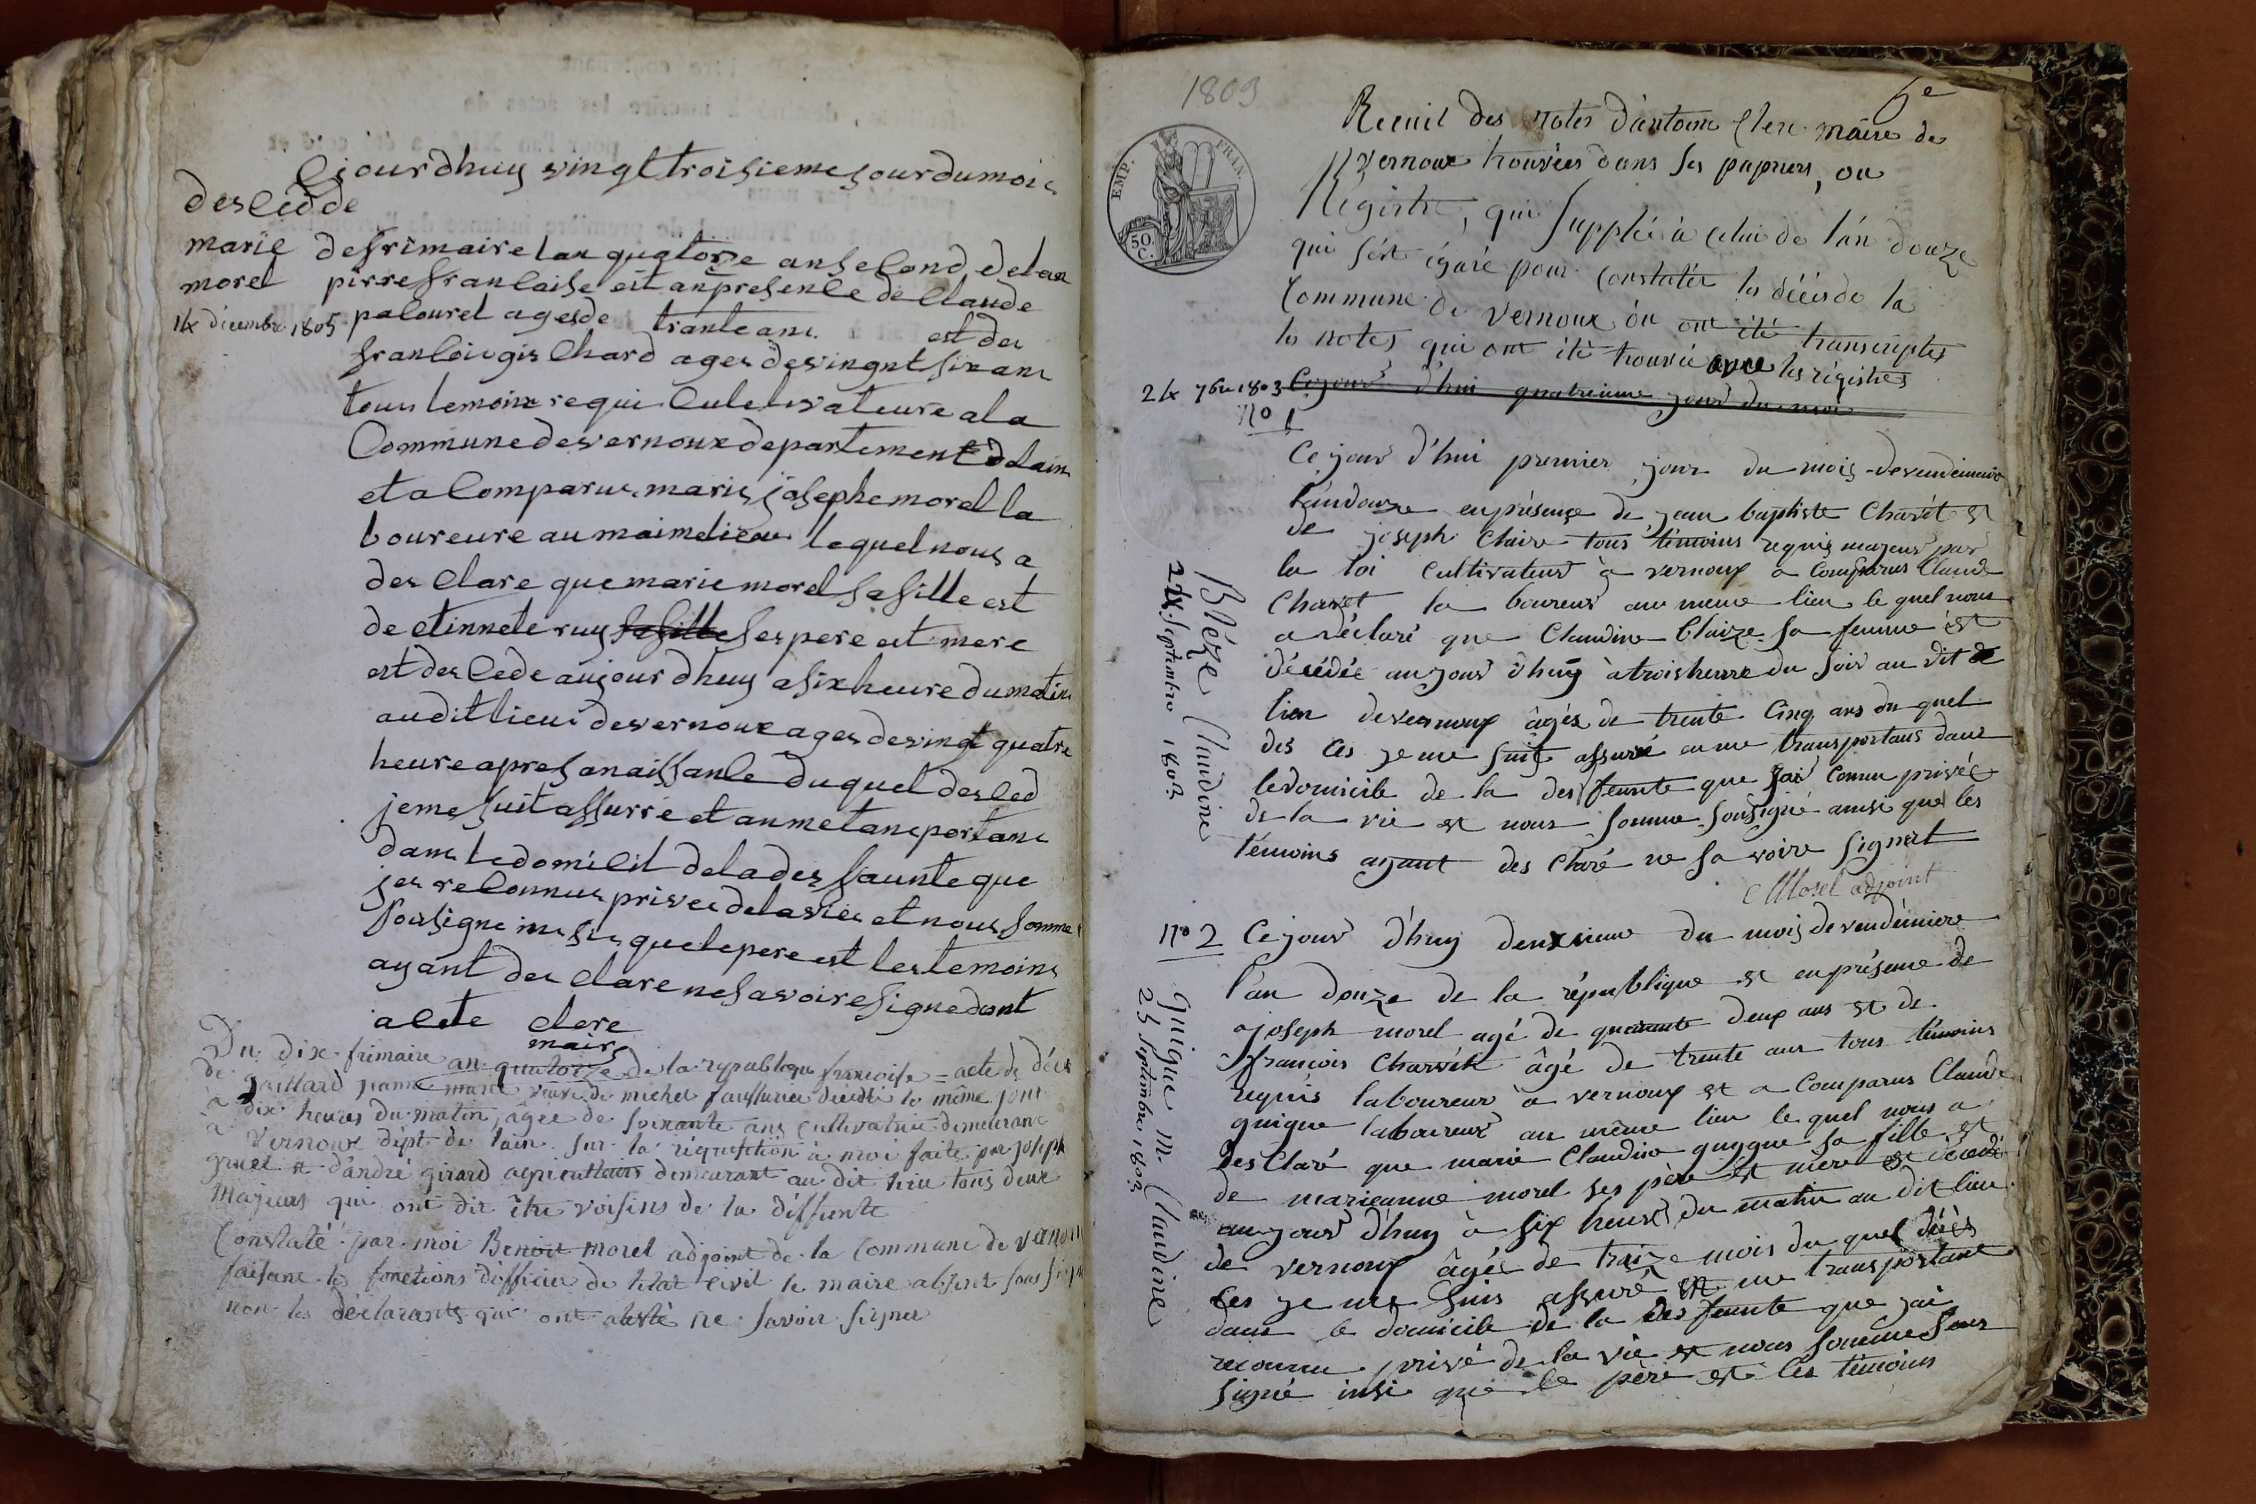 Cejourdhuy vingttroisieme jourdumois
descedde
marie
morel
14 décembre 1805
defrimaire lan quatorze anselond delan
pirrefranlaise eit anpresenle de Claude
palouret agesde tranteans est de
franlois gis Chard ages desvingnt sixans
tous temoinx requi Culetivateure a la
Commune desvernoux departement delain
et a Comparus marie josephe morel la
boureure au maimelieau lequel nous a
des Clare que marie morel sa fille est
de etinnete ruy sa fille ses pere est mere
est des cede aujourdhuy a six heure du matin
audit lieui desvernoux ages desvingt quatre
heure apres anaissanle duquel desced
jeme suit assurré et anmetansportans
dans ledomicil delades faunteque
jes reConnus prives delavies et nous somme
sousigne insis que le pere est les temoins
ayant des Clare ne savoire signe dont
alcte clerc
maire
Du dix frimaire an quatorze de la republique francoise = acte de décès
de gaillard jeanne marie veuve de michel faussurier decede le même jour
à dix heures du matin, âgée de soixante ans cultivatrice demeurant
à Vernoux dépt de lain. sur la réquisition à moi faite par joseph
gruel et d'andré girard agriculteurs demeurant au dit lieu tous deux
majeurs qui ont dit être voisins de la diffunte
Constaté par moi Benoit morel adjoint de la Commune de vernoux
faisant les fonctions d'officier de l'etat civil le maire absent sous signé
non les déclarants qui ont atesté ne savoir signer
1803
6e
EMP. FRAN.
50. C.
Recuil des notes d'antoine Clerc maire de
Vernoux trouvées dans ses papiers, ou
Régistre, qui supplée à celui de l'an douze
qui s'est égaré pour constater les décès de la
Commune de Vernoux où ont été transcriptes
les notes qui ont été trouvée avec les régistres
24 7bre 1803
Cejour d'hui quatrieme jour du mois
no 1
Ce jour d'hui premier jour du mois de vendémiaire
l'andouze enprésence de jean baptiste Charvét et
de joseph Claire tous témoins requis majeur par
la loi cultivateur à vernoux a comparus Claude
Charvet la boureur au meme lieu le quel nous
a déclaré que Claudine Claize sa femme est
décédée aujour d'huy à trois heurre du soir au dit
lieu devernoux âgés de trente cinq ans du quel
des ces je me suit assuré en me transportans dans
ledomicile de la des feunte que jai connu privée
de la vie et nous somme sousigné ainsi que les
témoins ayant des Claré ne sa voire signet
Morel adjoint
Bléze Claudine
24 Septembre 1803
no 2
Ce jour d'huy deuxieme du mois de vendémiere
l'an douze de la république et enprésence de
joseph morel agé de quarante deux ans et de
francois Charvét âgé de trente ans tous témoins
requis laboureur à vernoux et a Comparus Claude
guigue laboureur au même lieu le quel nous a
des Claré que marie Claudine guygue sa fille et
de marieanne morel ses père et mere est décédé
aujour d'huy à six heures du matin au dit lieu
de vernoux âgés de traize mois du quel décès
ces je me suis assuré et me transportant
dans le domicile de la des feunte que jai
reconnu privé de la vie et nous somme sous
signé insi que le père et les témoins
guigue M. Claudine
25 Septembre 1803